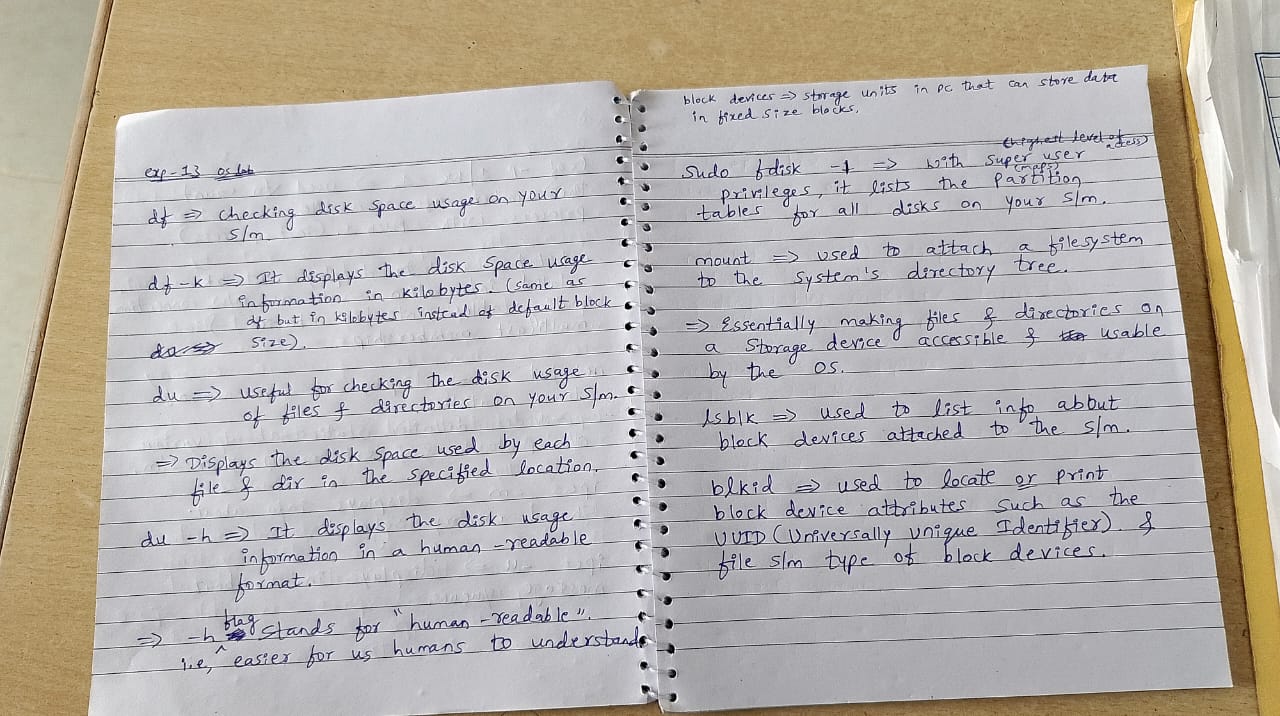 exp-13 os lab
df ⇒ checking disk space usage on your
s/m
df -k ⇒ It displays the disk space usage
information in kilobytes. (same as
df but in kilobytes instead of default block
size).
du ⇒ useful for checking the disk usage
of files & directories on your s/m.
⇒ Displays the disk space used by each
file & dir in the specified location.
du -h ⇒ It displays the disk usage
information in a human-readable
format.
⇒ -h flag stands for "human-readable".
i.e, easier for us humans to understand
block devices ⇒ storage units in pc that can store data
in fixed size blocks.
(highest level of
access)
Sudo fdisk -l ⇒ with super user
(maps)
privileges, it lists the partition
tables for all disks on your s/m.
mount ⇒ used to attach a filesystem
to the system's directory tree.
⇒ Essentially making files & directories on
a storage device accessible & usable
by the OS.
lsblk ⇒ used to list info about
block devices attached to the s/m.
blkid ⇒ used to locate or print
block device attributes such as the
UUID (Universally Unique Identifier) &
file s/m type of block devices.